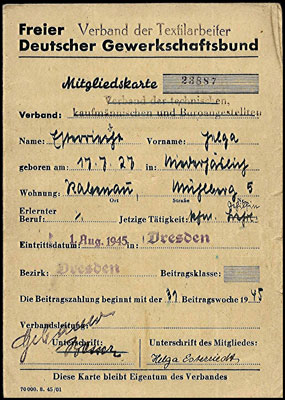 Freier Verband der Textilarbeiter
Deutscher Gewerkschaftsbund
Mitgliedskarte 23887
Verband der technischen,
Verband: kaufmännischen und Büroangestellten
Name: Vorname: Helga
geboren am 17. 7. 27 in
Wohnung: 5
Ort Straße
Erlernter
Beruf: / Jetzige Tätigkeit: kfm.
Eintrittsdatum 1. Aug. 1945 in Dresden
Bezirk: Dresden Beitragsklasse:
Die Beitragszahlung beginnt mit der 31 Beitragswoche 1945
Verbandsleitung:
Unterschrift: Unterschrift des Mitgliedes:
Helga
Diese Karte bleibt Eigentum des Verbandes
70 000. 8. 45/01